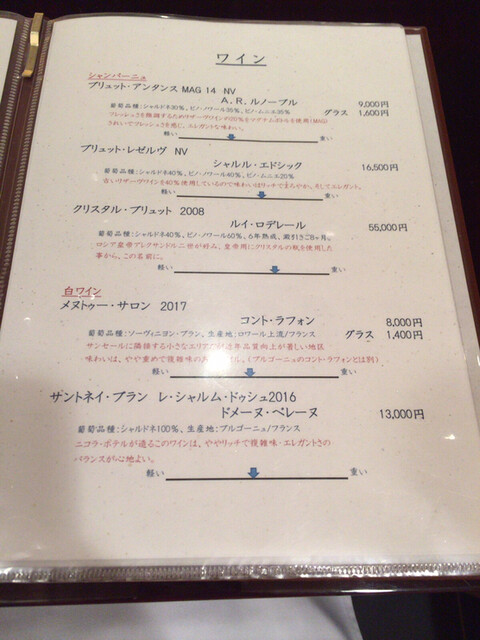 ワイン
シャンパーニュ
ブリュット・アンタンス MAG 14 NV
A.R.ルノーブル 9,000円
葡萄品種:シャルドネ30%、ピノ・ノワール35%、ピノ・ムニエ35% グラス 1,600円
フレッシュさを維持するためリザーヴワインの20%をマグナムボトルを使用(MAG)
きれいでフレッシュさを感じ、エレガントな味わい。
軽い 重い
ブリュット・レゼルヴ NV
シャルル・エドシック 16,500円
葡萄品種:シャルドネ40%、ピノ・ノワール40%、ピノ・ムニエ20%
古いリザーヴワインを40%使用しているので味わいはリッチでまろやか、そしてエレガント。
軽い 重い
クリスタル・ブリュット 2008
ルイ・ロデレール 55,000円
葡萄品種:シャルドネ40%、ピノ・ノワール60%、6年熟成、澱引きご8ヶ月。
ロシア皇帝アレクサンドル二世が好み、皇帝用にクリスタルの瓶を使用した
事から、この名前に。
軽い 重い
白ワイン
メヌトゥー・サロン 2017
コント・ラフォン 8,000円
葡萄品種:ソーヴィニヨン・ブラン、生産地:ロワール上流/フランス グラス 1,400円
サンセールに隣接する小さなエリアで近年品質向上が著しい地区
味わいは、やや重めで複雑味の (ブルゴーニュのコント・ラフォンとは別)
軽い 重い
サントネイ・ブラン レ・シャルム・ドゥシュ2016
ドメーヌ・ベレーヌ 13,000円
葡萄品種:シャルドネ100%、生産地:ブルゴーニュ/フランス
ニコラ・ポテルが造るこのワインは、ややリッチで複雑味・エレガントさの
バランスが心地よい。
軽い 重い